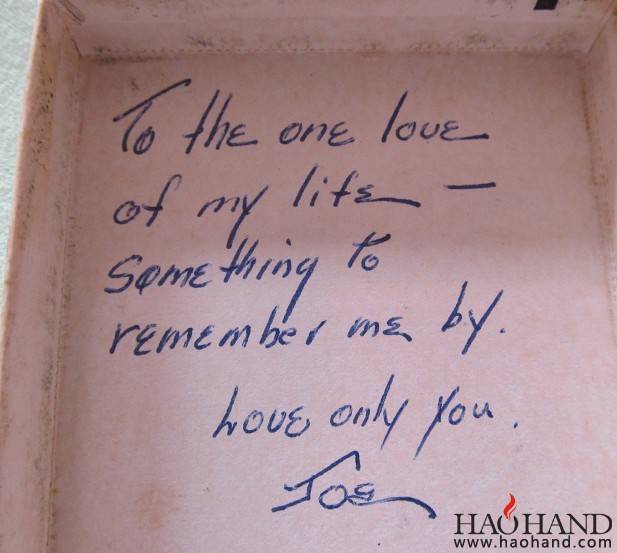 To the one love
of my life —
something to
remember me by.
Love only you.
Joe
HAOHAND
www.haohand.com